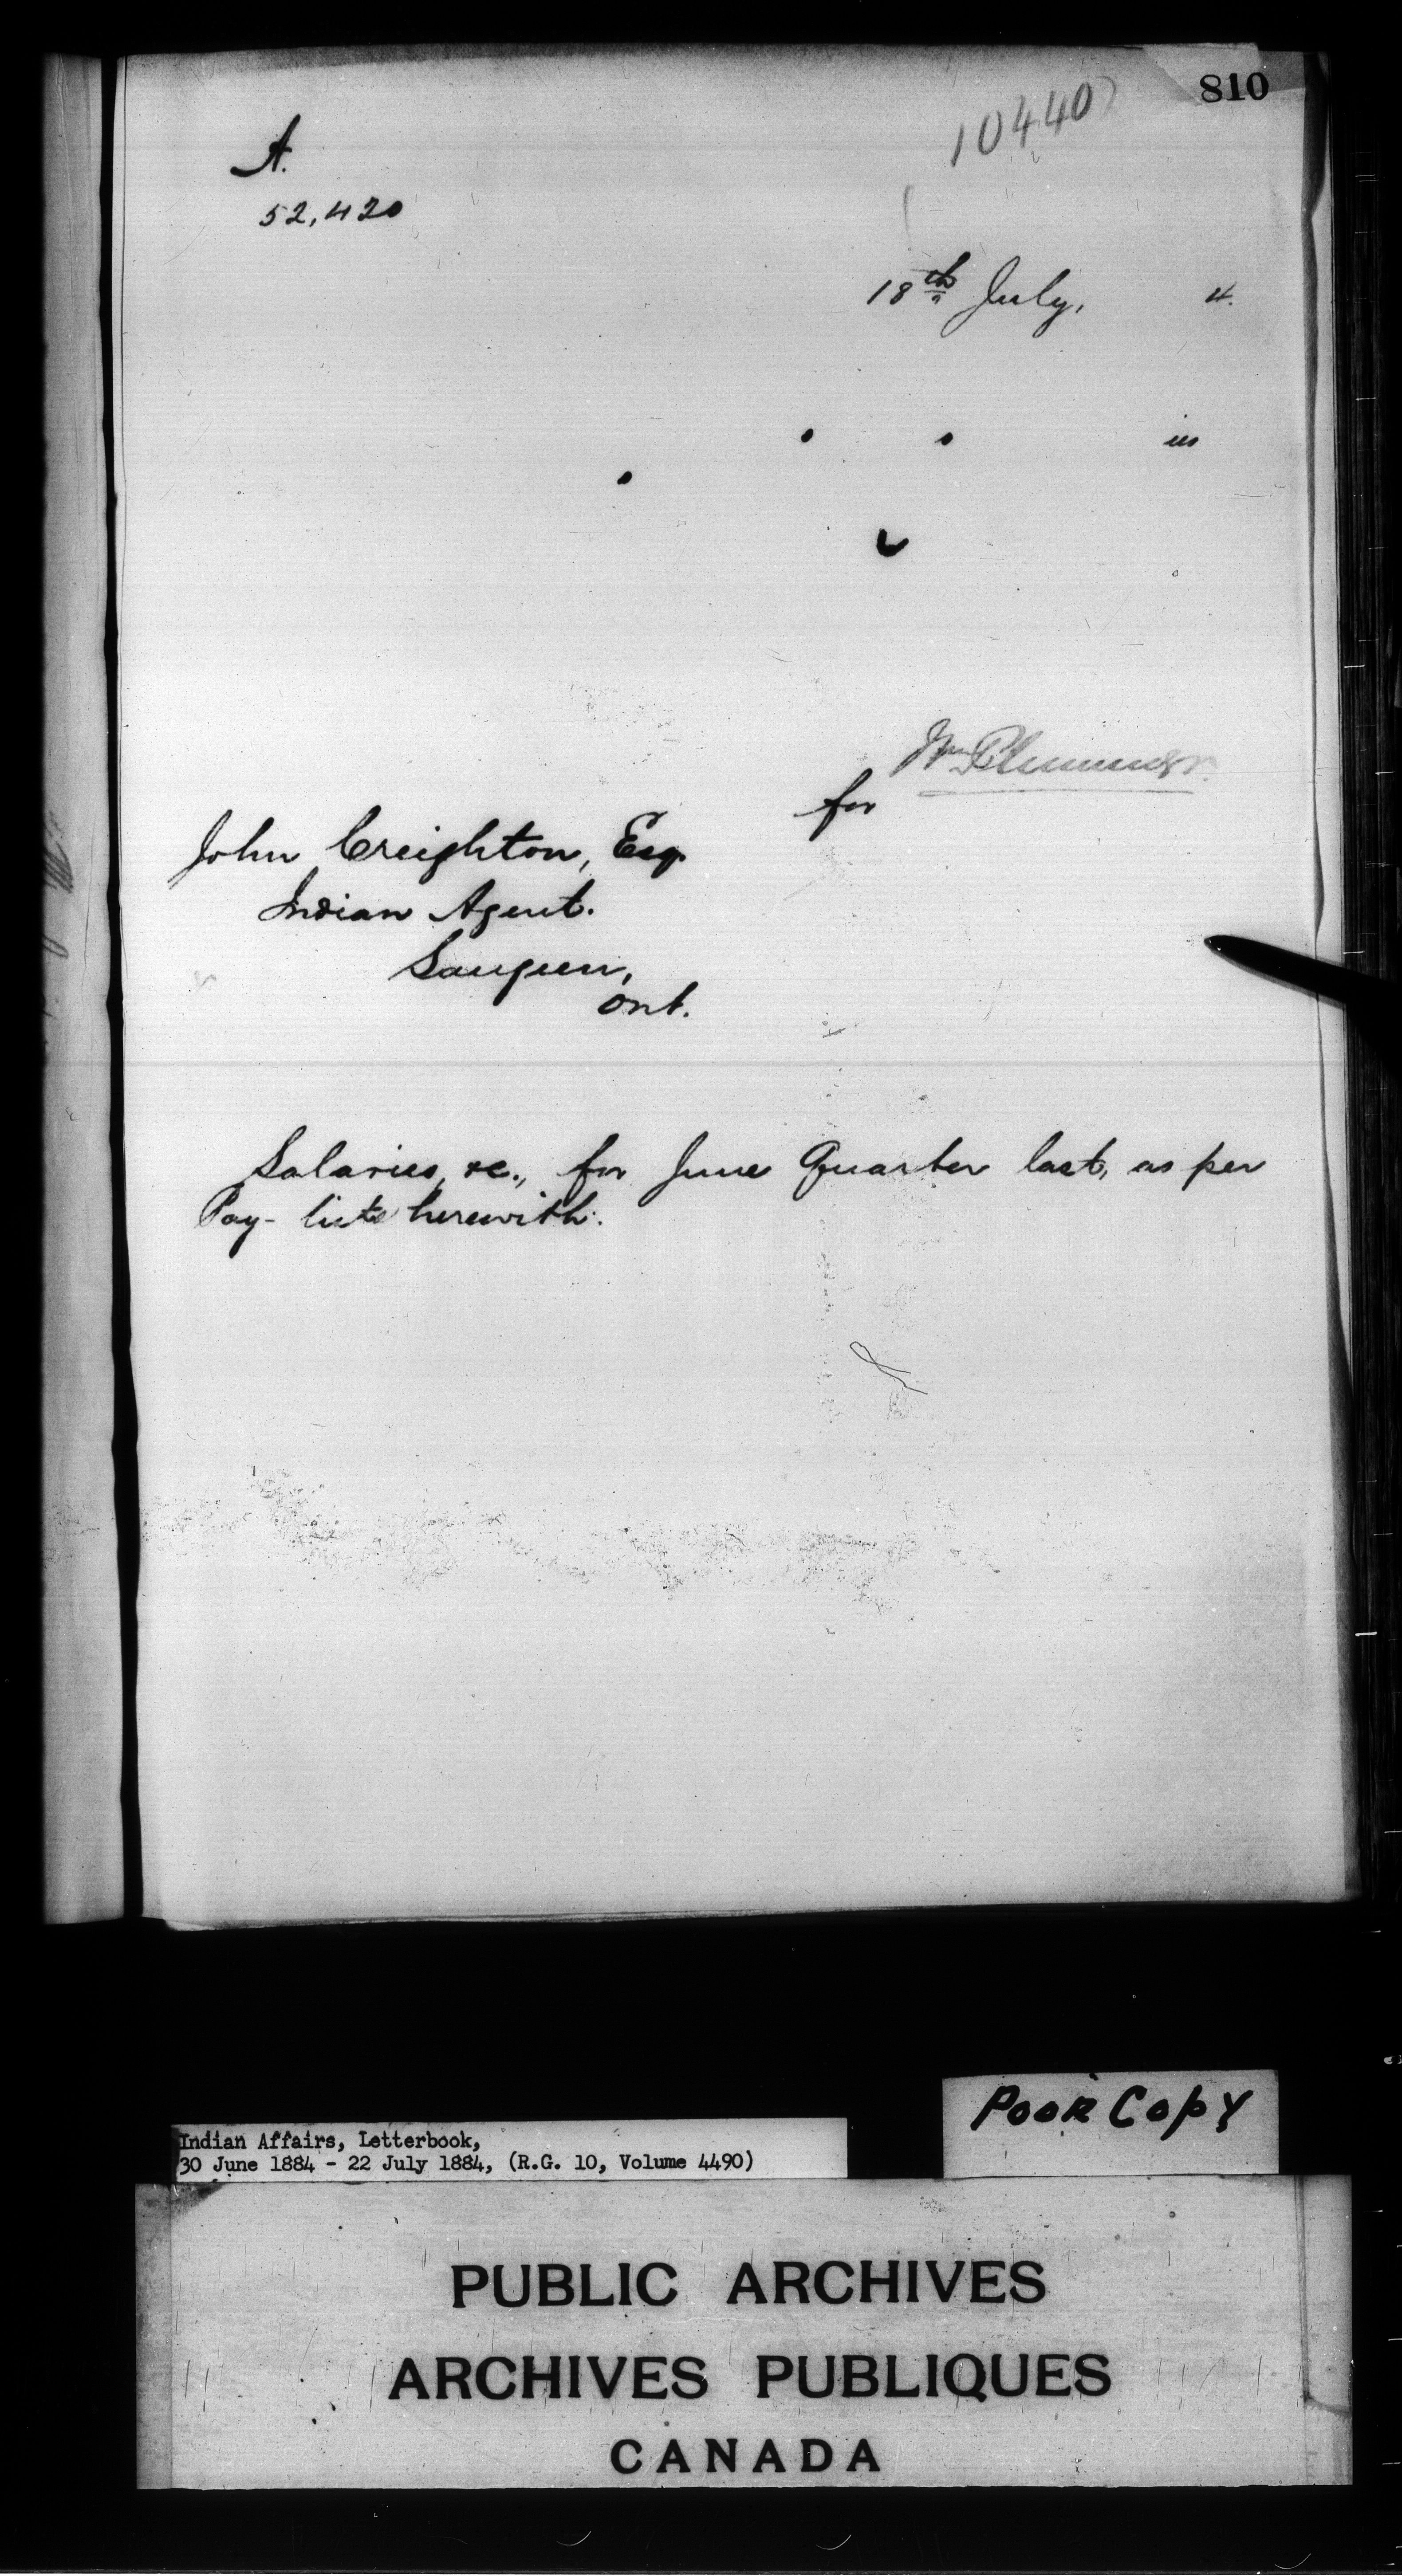 810
10440
A.
52,420
18th July, 4.
in
Wm Plummer.
for
John Creighton, Esq
Indian Agent.
Saugeen,
Ont.
Salaries, &c., for June Quarter last, as per
Pay-lists herewith.
Poor Copy
Indian Affairs, Letterbook,
30 June 1884 - 22 July 1884, (R.G. 10, Volume 4490)
PUBLIC ARCHIVES
ARCHIVES PUBLIQUES
CANADA